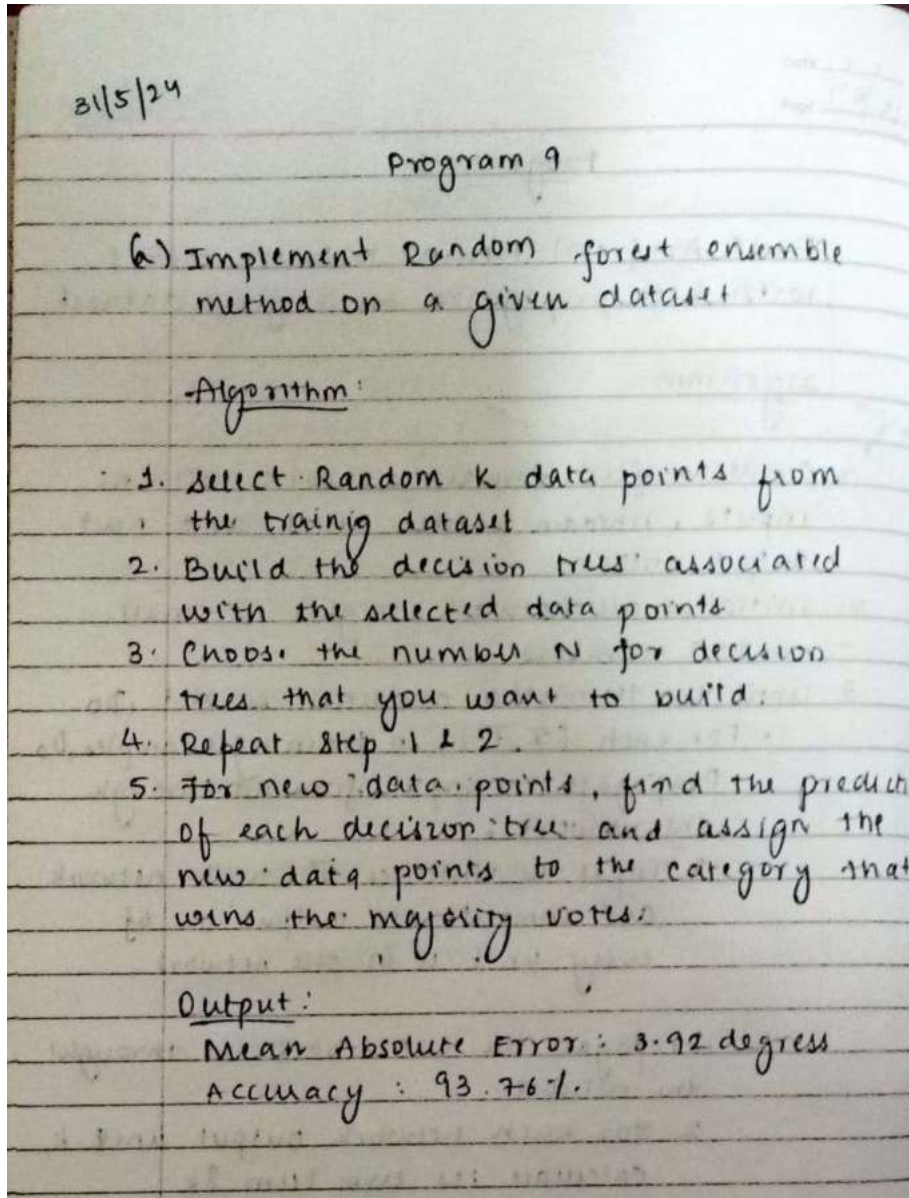 31/5/24
Program 9
(a) Implement Random forest ensemble
method on a given dataset.
Algorithm:
1. Select Random K data points from
the trainig dataset
2. Build the decision trees associated
with the selected data points
3. Choose the number N for decision
trees that you want to build.
4. Repeat step 1 & 2.
5. For new data points, find the predictn
of each decision tree and assign the
new data points to the category that
wins the majority votes.
Output:
Mean Absolute Error: 3.92 degress
Accuracy : 93.76%.